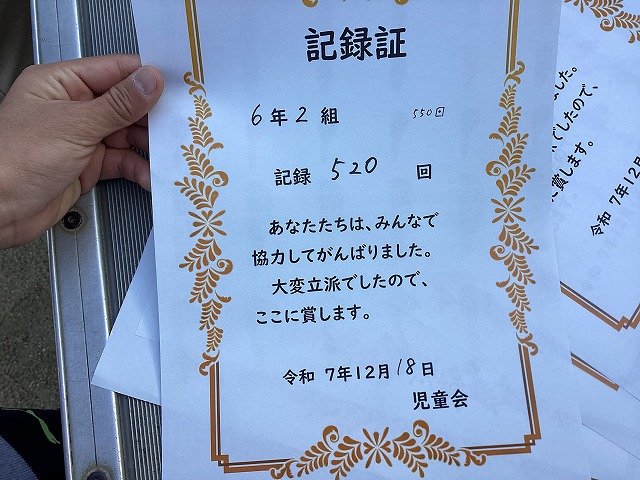 記録証
6年2組 550回
記録 520 回
あなたたちは、みんなで
協力してがんばりました。
大変立派でしたので、
ここに賞します。
令和 7年12月18日
児童会
ました。
でしたので、
に賞します。
令和 7年12月